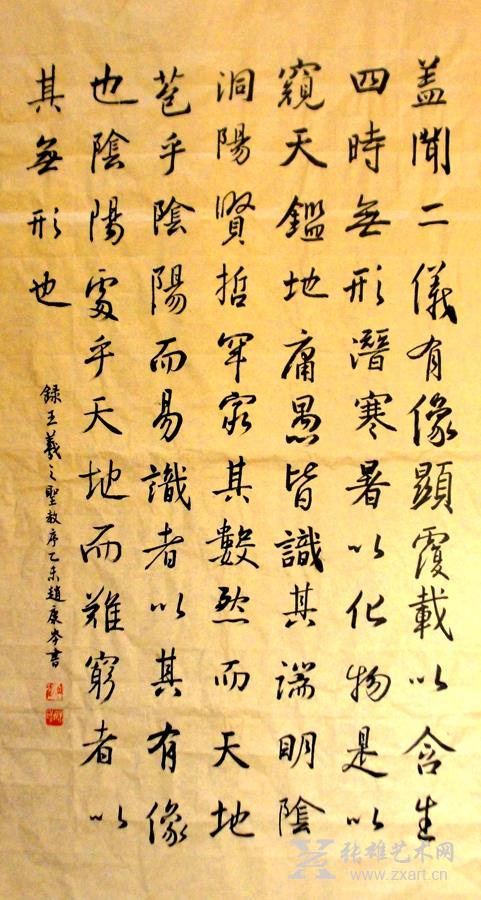 蓋聞二儀有像顯覆載以含生
四時無形潛寒暑以化物是以
窺天鑑地庸愚皆識其端明陰
洞陽賢哲罕窮其數然而天地
苞乎陰陽而易識者以其有像
也陰陽處乎天地而難窮者以
其無形也
錄王羲之聖教序乙未趙庚岑書
张雄艺术网
www.zxart.cn